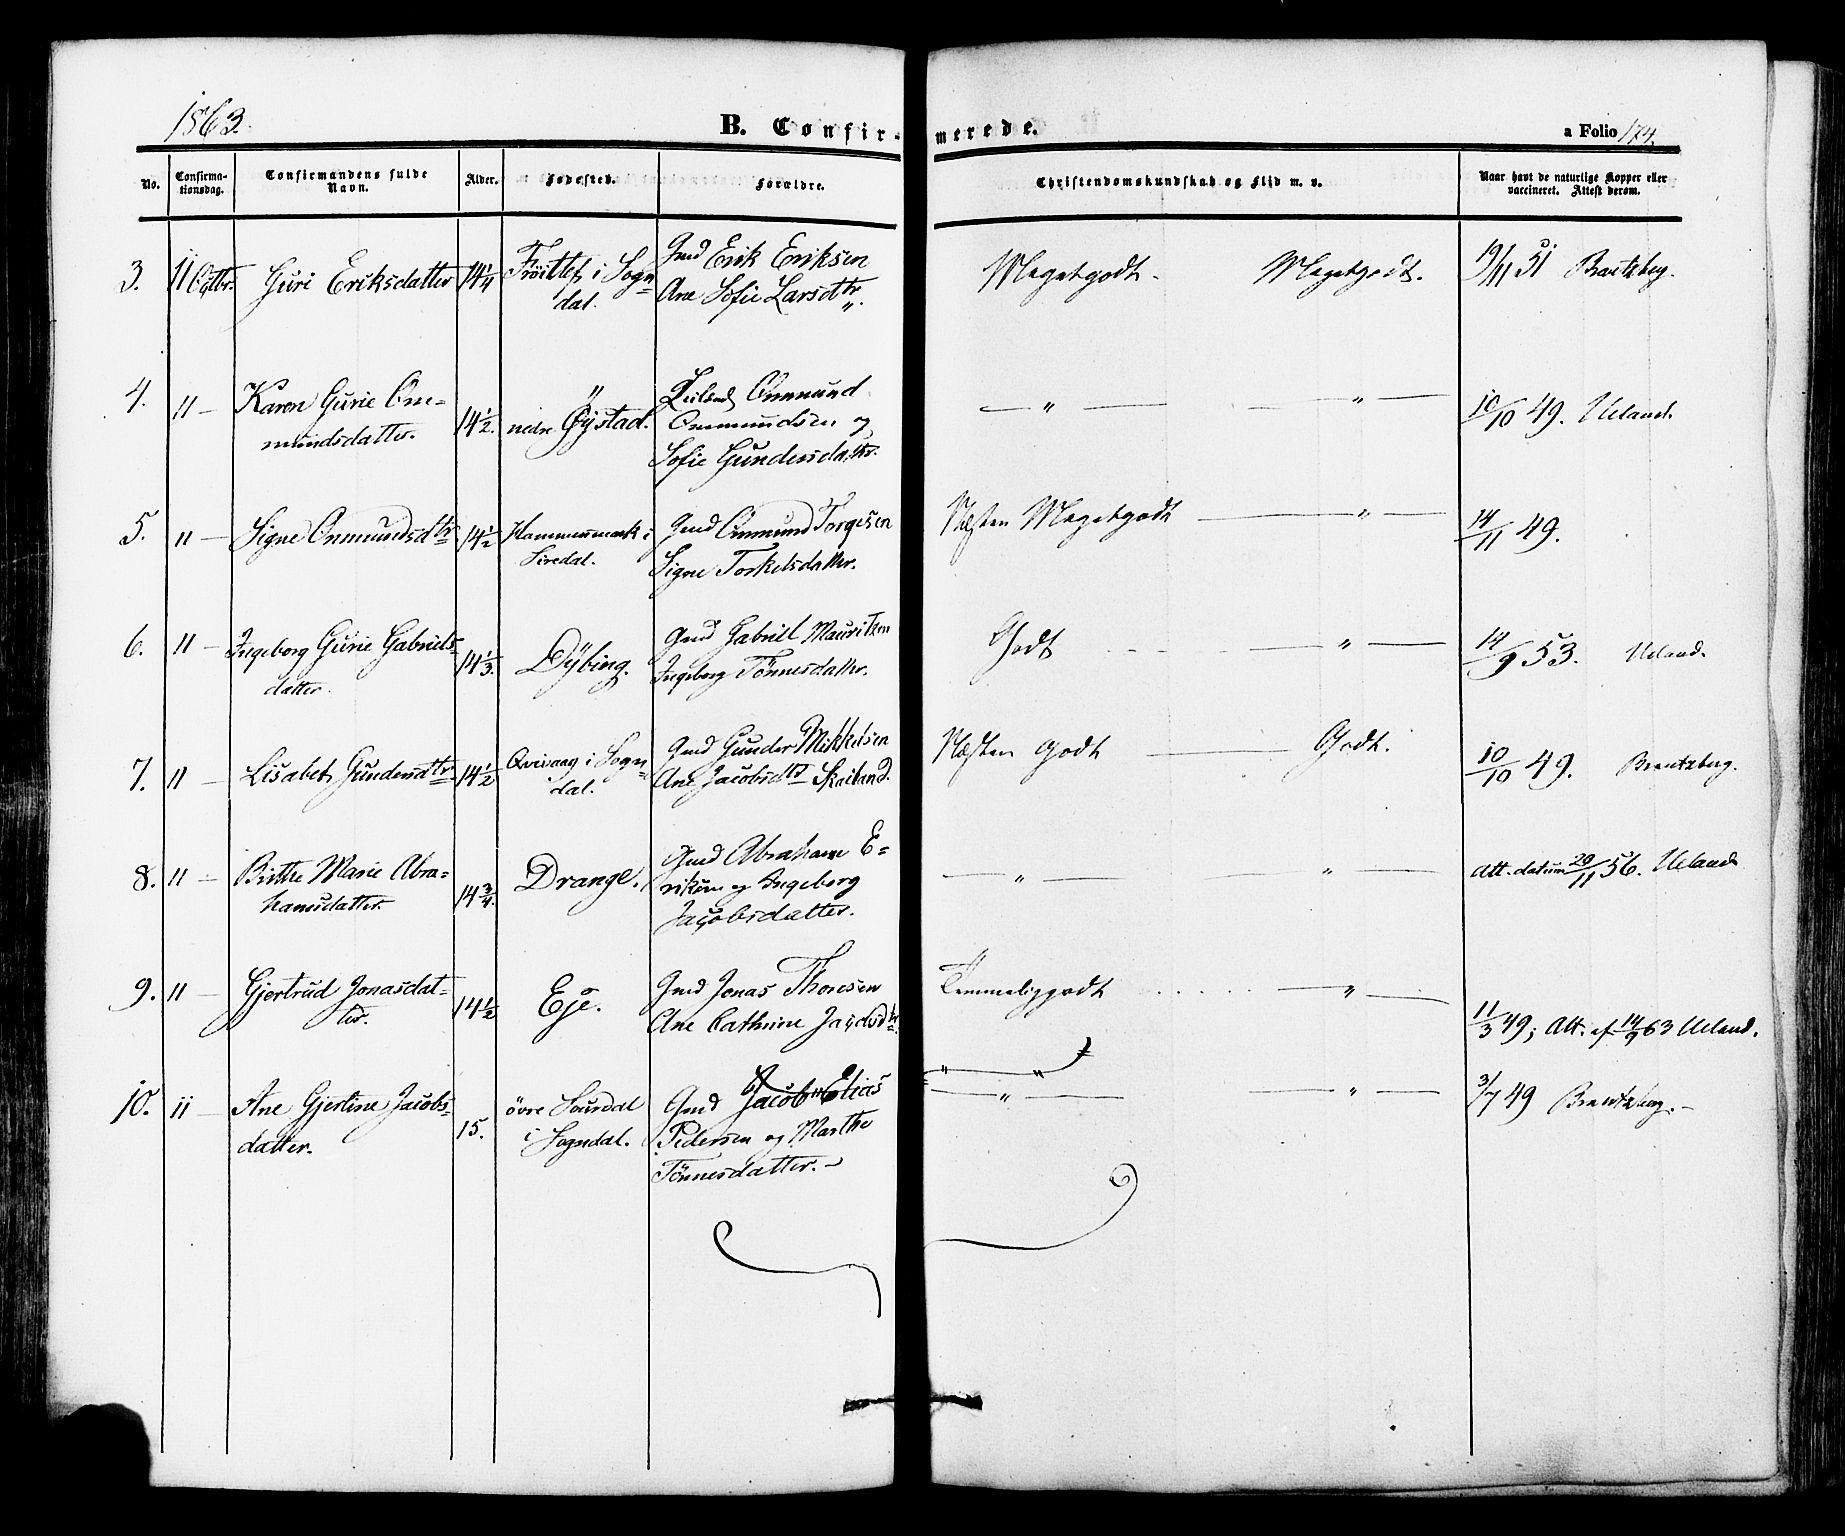 1863.
B. Confir-merede.
a Folio 174.
No.
Confirma-
tionsdag.
Confirmandens fulde
Navn.
Alder.
Fødested.
Forældre.
Christendomskundskab og Flid m. v.
Naar havt de naturlige Kopper eller
vaccineret. Attest derom.
3. 11 Octbr. Guri Eriksdatter 14 1/4 i Sogn-
dal.
Gmd Erik Eriksen
Ane Sofie Larsdtr.
Megetgodt. Megetgodt. 19/11 51 Brantzberg.
4. 11 — Karen Gurie Om-
mundsdatter. 14 1/2. nedre Øÿstad.
Leilend Ommund
Ommundsen og
Sofie Gundersdattr.
— " — — " — 10/10 49. Ueland.
5. 11 — Signe Ommundsdtr 14 1/2 Hammersmark i
Siredal.
Gmd Ommund Torgesen
Signe Torkelsdattr.
Næsten Megetgodt — " — 14/11 49.
6. 11 — Ingeborg Gurie Gabriels-
datter. 14 1/3. Dÿbing.
Gmd Gabriel Mauritzen
Ingeborg Tönnesdattr.
Godt — " — 14/9 53. Ueland.
7. 11 — Lisabet Gundersdtr. 14 1/2 i Sogn-
dal.
Gmd Gunder Mikkelsen
Ane Jacobsdtr Skailand.
Næsten Godt — Godt. 10/10 49. Brantzberg.
8. 11 — Birthe Marie Abra-
hamsdatter. 14 3/4. Drange.
Gmd Abraham E-
riksen og Ingeborg
Jacobsdatter.
— " — — " — Att. datum 29/11 56. Ueland
9. 11 — Gjertrud Jonasdat-
ter. 14 1/2 Eje.
Gmd Jonas Thoresen
Ane Cathrine Jacobsdtr.
Temmeliggodt — " — 11/3 49; Att. af 14/9 63 Ueland.
10. 11 — Ane Gjertine Jacobs-
datter. 15. övre Sourdal
i Sogndal.
Gmd Jacob Elias
Pedersen og Marthe
Tönnesdatter. —
— " — — " — 3/7 49 Brantzberg. —